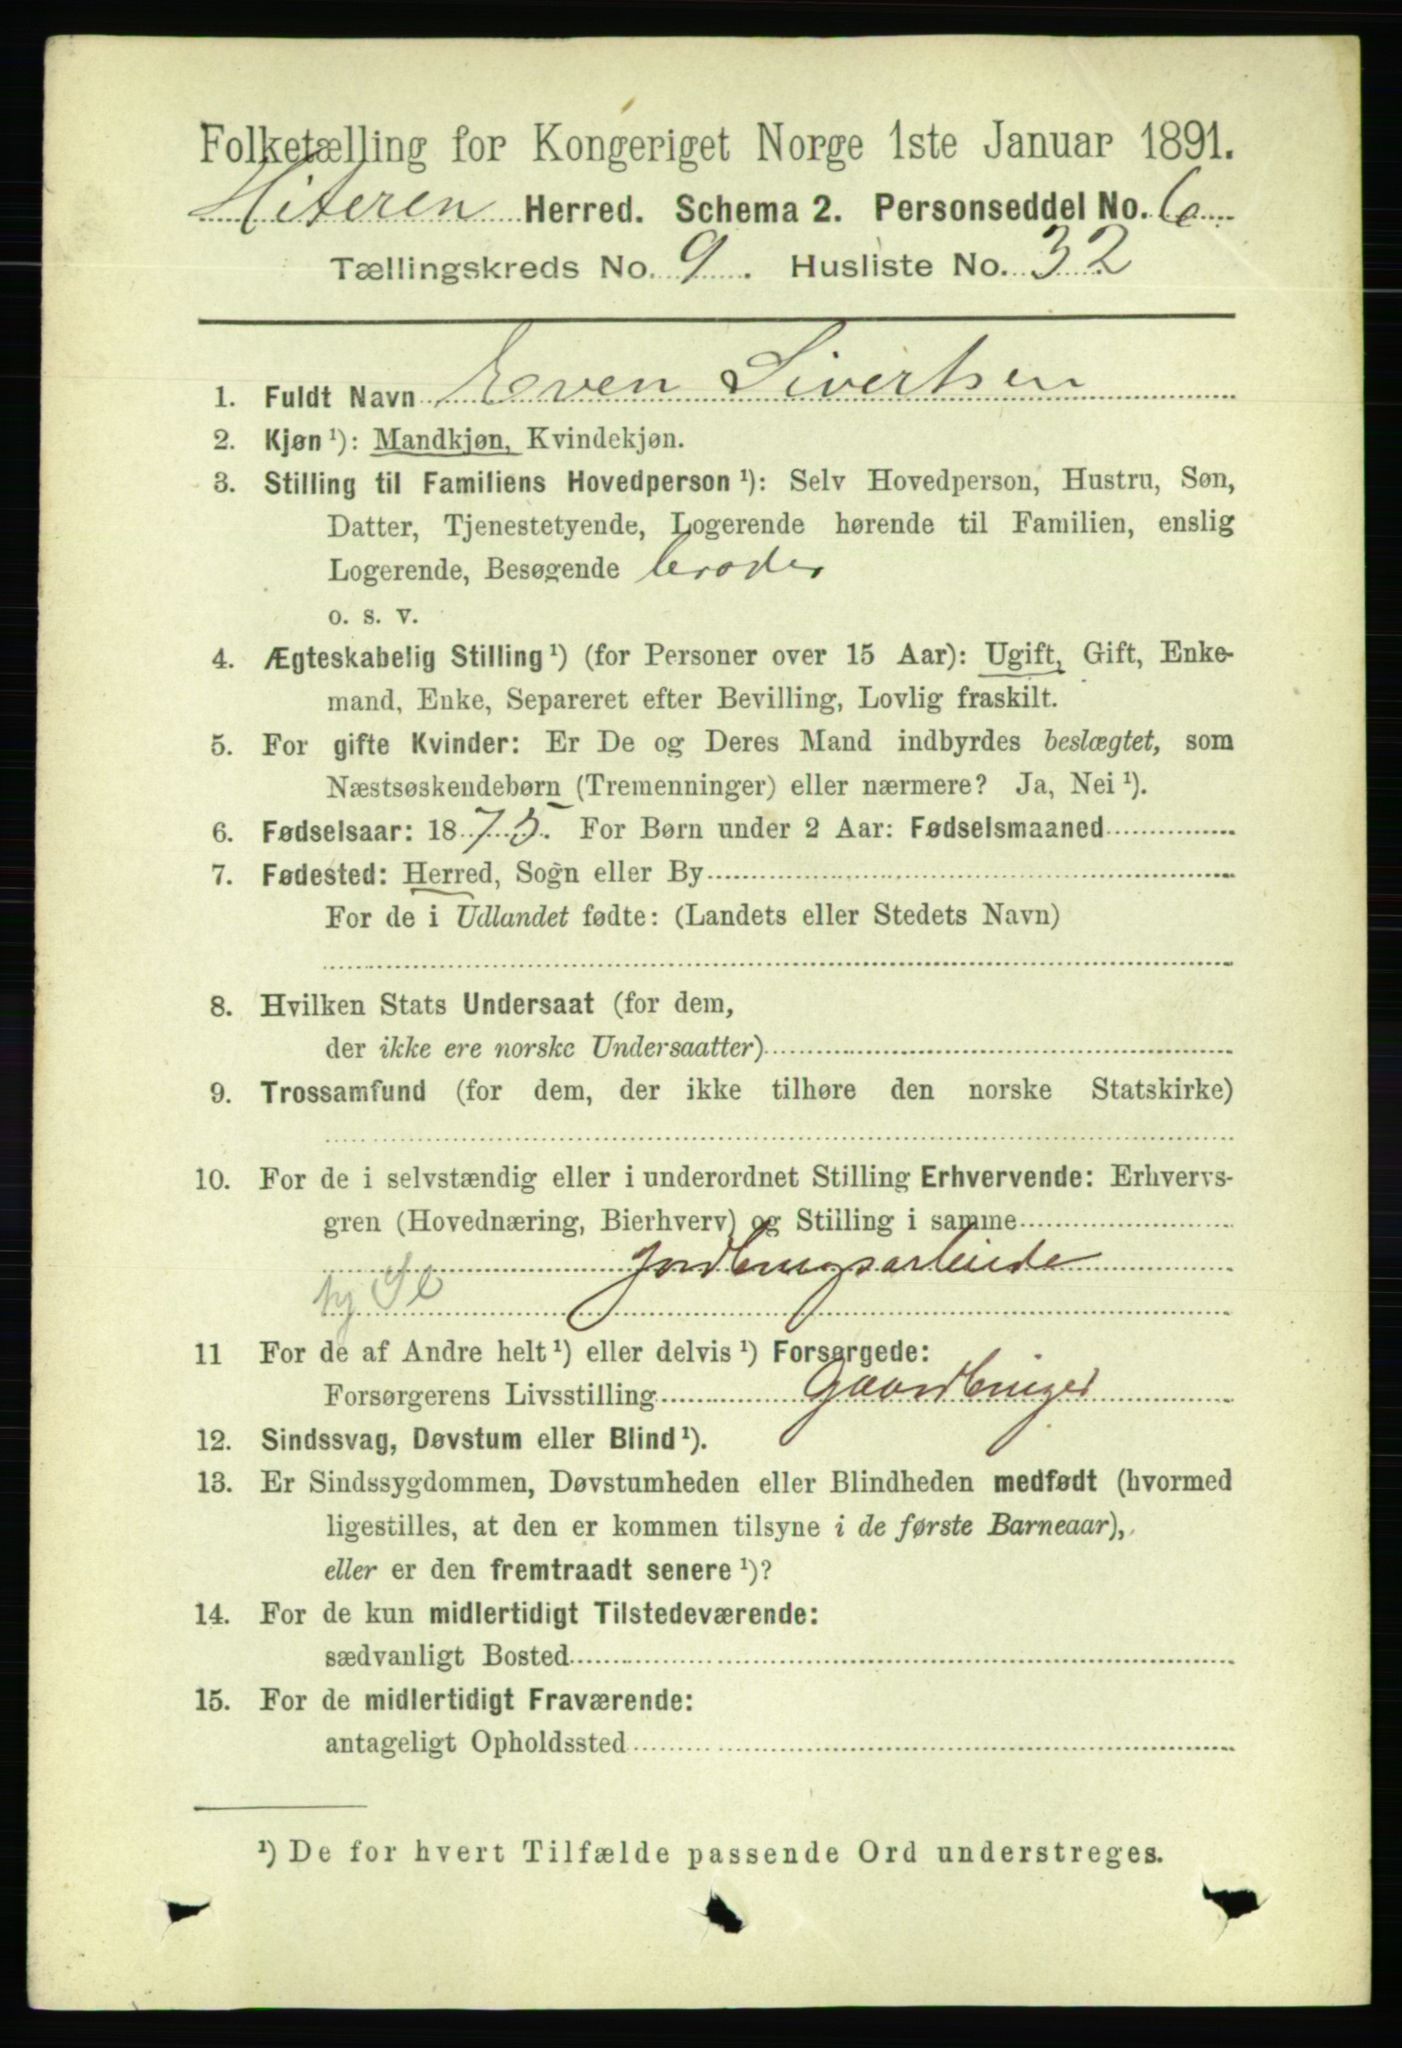 Folketælling for Kongeriget Norge 1ste Januar 1891.
Hiteren Herred. Schema 2. Personseddel No. 6
Tællingskreds No. 9. Husliste No. 32
1. Fuldt Navn Even Sivertsen
2. Kjøn ¹): Mandkjøn, Kvindekjøn.
3. Stilling til Familiens Hovedperson ¹): Selv Hovedperson, Hustru, Søn,
Datter, Tjenestetyende, Logerende hørende til Familien, enslig
Logerende, Besøgende broder
o. s. v.
4. Ægteskabelig Stilling ¹) (for Personer over 15 Aar): Ugift, Gift, Enke-
mand, Enke, Separeret efter Bevilling, Lovlig fraskilt.
5. For gifte Kvinder: Er De og Deres Mand indbyrdes beslægtet, som
Næstsøskendebørn (Tremenninger) eller nærmere? Ja, Nei ¹).
6. Fødselsaar: 1875. For Børn under 2 Aar: Fødselsmaaned
7. Fødested: Herred, Sogn eller By
For de i Udlandet fødte: (Landets eller Stedets Navn)
8. Hvilken Stats Undersaat (for dem,
der ikke ere norske Undersaatter)
9. Trossamfund (for dem, der ikke tilhøre den norske Statskirke)
10. For de i selvstændig eller i underordnet Stilling Erhvervende: Erhvervs-
gren (Hovednæring, Bierhverv) og Stilling i samme
Jordbrugsarbeide
11 For de af Andre helt ¹) eller delvis ¹) Forsørgede:
Forsørgerens Livsstilling Gaardbruger
12. Sindssvag, Døvstum eller Blind ¹).
13. Er Sindssygdommen, Døvstumheden eller Blindheden medfødt (hvormed
ligestilles, at den er kommen tilsyne i de første Barneaar),
eller er den fremtraadt senere ¹)?
14. For de kun midlertidigt Tilstedeværende:
sædvanligt Bosted
15. For de midlertidigt Fraværende:
antageligt Opholdssted
¹) De for hvert Tilfælde passende Ord understreges.